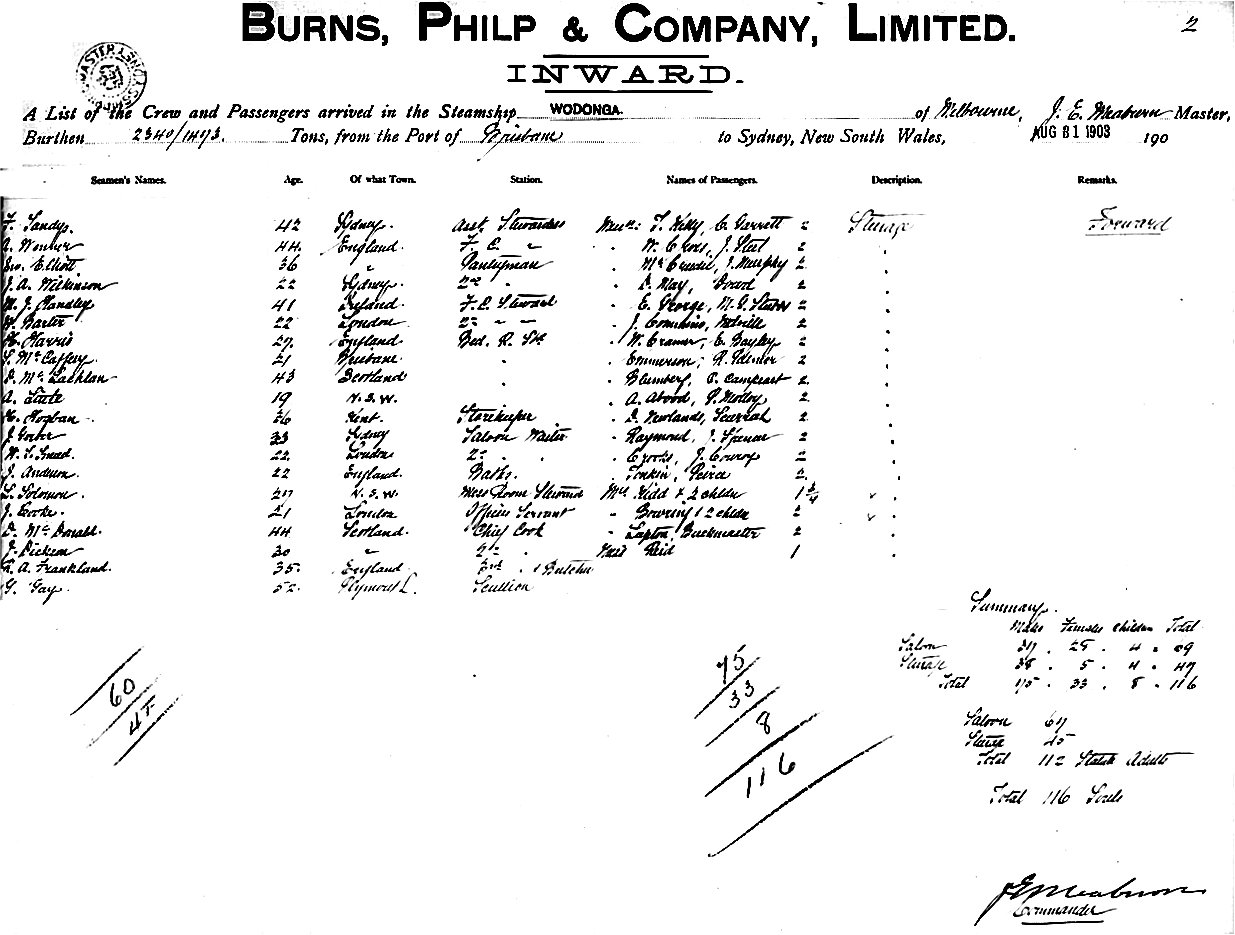 BURNS, PHILP & COMPANY, LIMITED.
2
INWARD.
A List of the Crew and Passengers arrived in the Steamship WODONGA. of Melbourne, J. E. Meaburn Master,
Burthen 2340/1473. Tons, from the Port of Brisbane to Sydney, New South Wales, AUG 31 1903 190
Seamen's Names. Age. Of what Town. Station. Names of Passengers. Description. Remarks.
F. Sandys. 42 Sydney. Asst. Stewardess Messrs: T. Kelly, C. Garrett 2 Steerage Forward
44. England. F. C. " W. Cross, J. Steel 2
Geo. Elliott. 36 " Pantryman J. Murphy 2
J. A. Wilkinson 22 Sydney. 2nd D. May, 2
W. J. Handley 41 Ireland. F. C. Steward E. George, 2
W. Barter 22 London 2nd " " J. Commins, Melville 2
H. Harris 27. England Bed. R. Std W. Cramer, E. Bayley 2
S. McCaffery. 21 Brisbane. Emmerson, 2
D. McLachlan 43 Scotland Blumberg, 2
A. 19 N.S.W. A. Abood, P. Molloy 2
36 Kent. Storekeeper D. Newlands, 2
J. 33 Sydney Saloon Waiter Raymond, J. Spencer 2
W. T. 22 London 2nd Crooks, J. Conroy 2
J. Anderson. 22 England. Baths. Tonkin, Peirce 2
L. Solomon. 27 N.S.W. Mess Room Steward Mrs Kidd & 2 childn 1
J. Cooke. 21 London Officers Servant " Bowring & 2 childn 2
D. McDonald. 44 Scotland. Chief Cook " Lupton, Buckmaster 2
J. Dickson 30 " 2nd Miss Reid 1
A. Frankland. 35. England. 3rd & Butcher
G. Gay. 52. Plymouth. Scullion
Summary.
Males Females Children Total
Saloon 37 . 28 . 4 . 69
Steerage 38 . 5 . 4 . 47
Total 75 . 33 . 8 . 116
60
45
75
33
8
116
Saloon 67
Steerage 45
Total 112 Statute Adults
Total 116 Souls
J E Meaburn
Commander